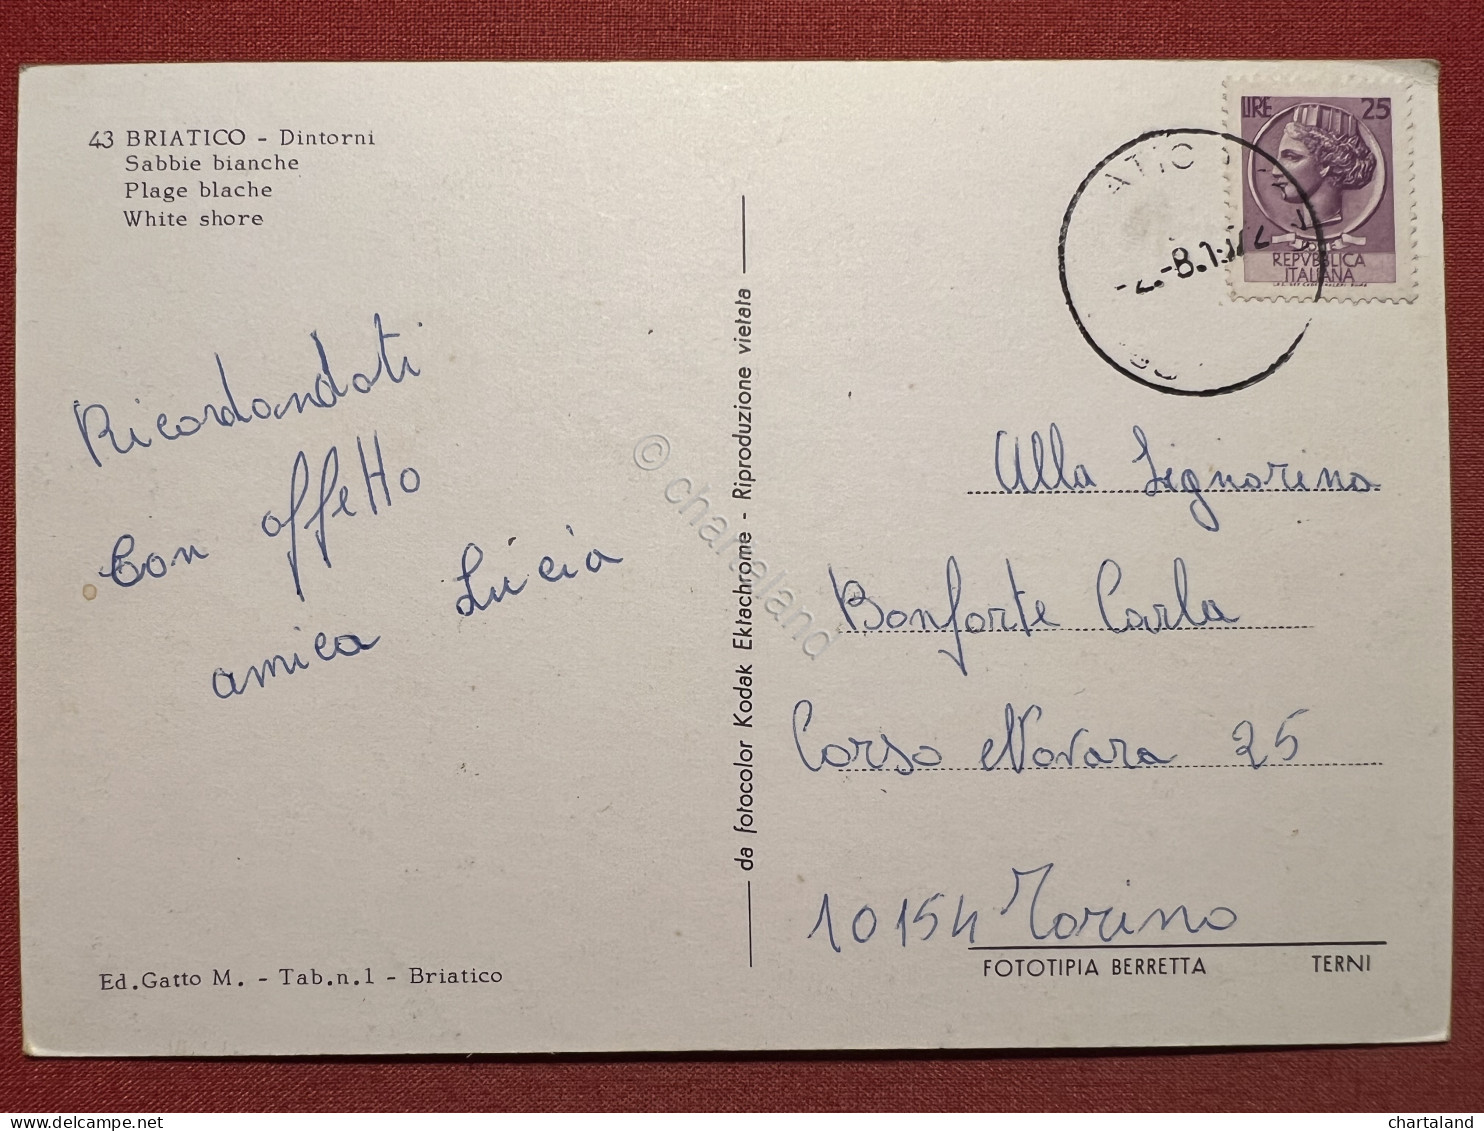 43 BRIATICO - Dintorni
Sabbie bianche
Plage blache
White shore
Ricordandoti
Con affetto
amica Lucia
Ed.Gatto M. - Tab.n.1 - Briatico
da fotocolor Kodak Ektachrome - Riproduzione vietata
LIRE 25
REPVBBLICA
ITALIANA
ATIC
Alla Signorina
Bonforte Carla
Corso Novara 25
10154 Torino
FOTOTIPIA BERRETTA TERNI
© chartaland
chartaland